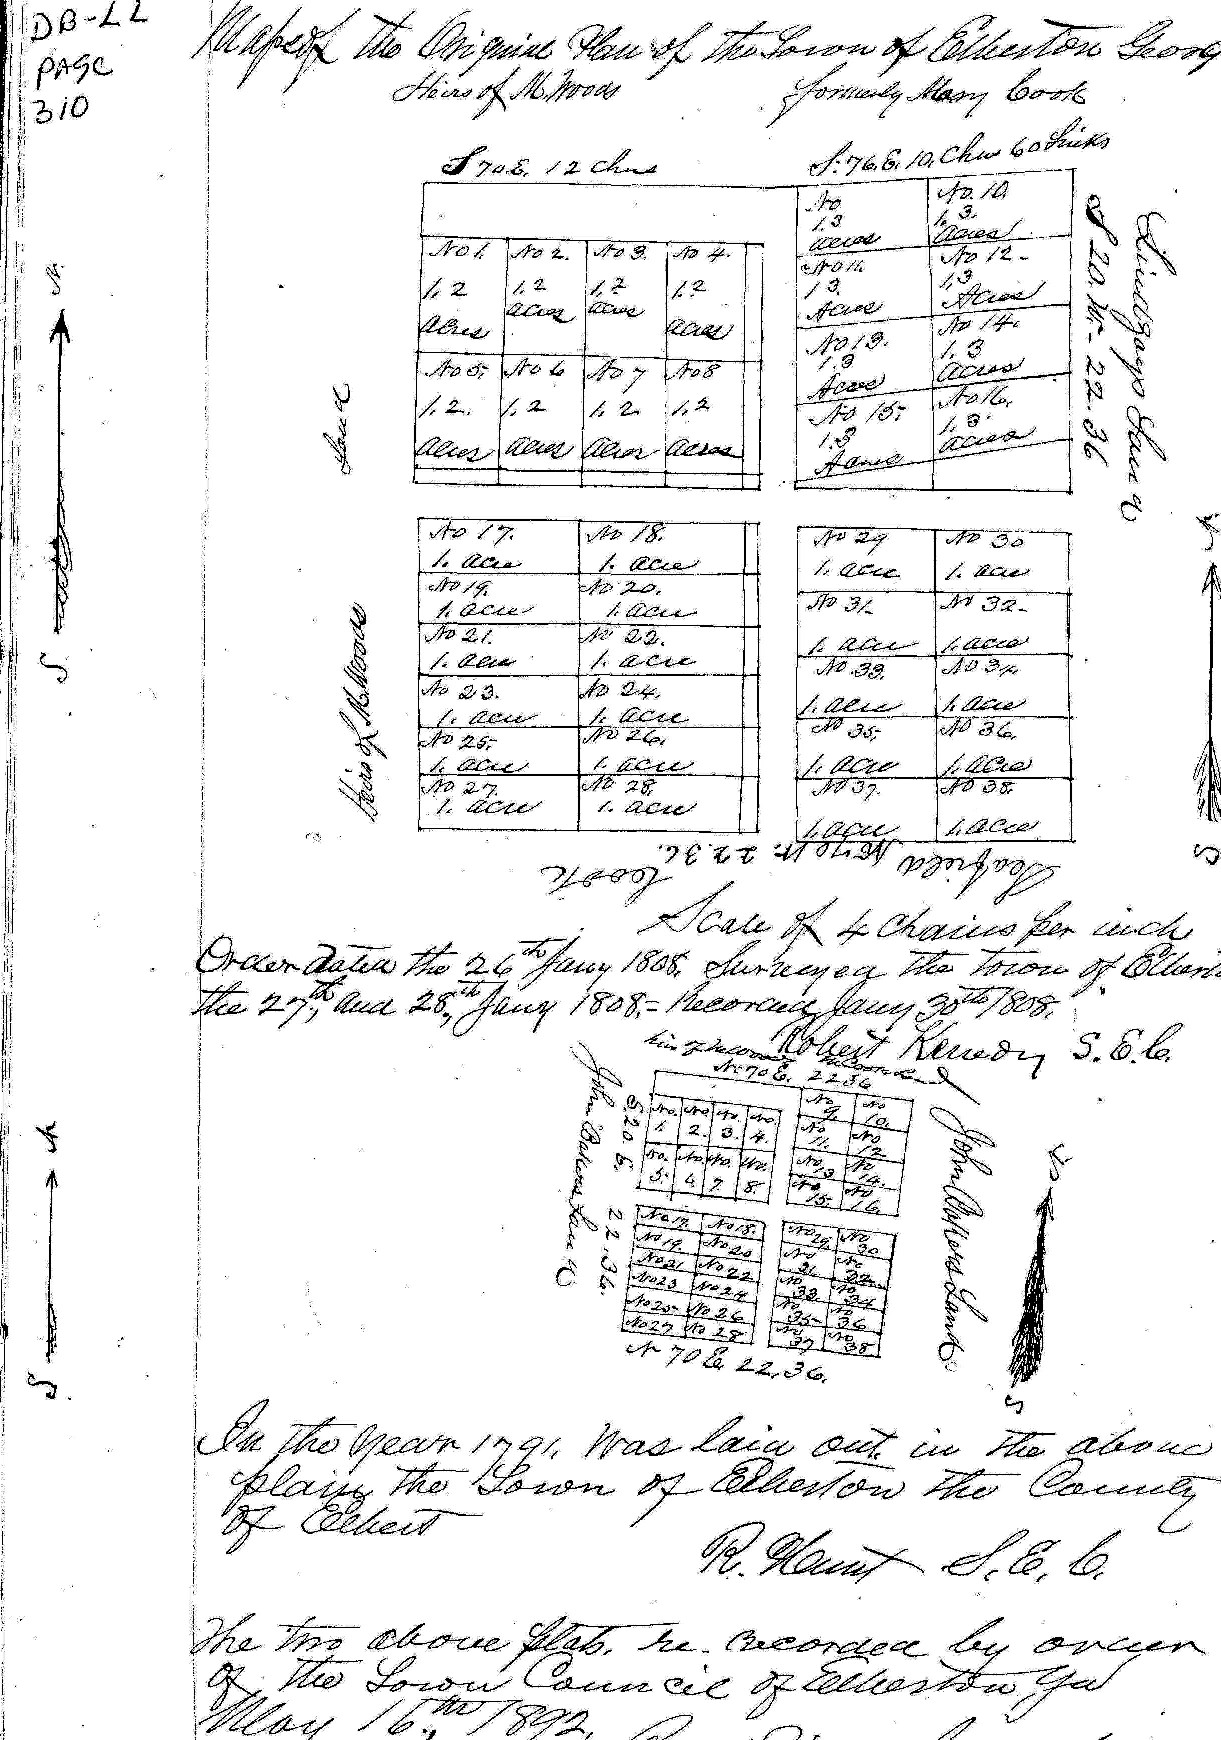 DB-LL
PAGE
310
Maps of the Original Plan of the Town of Elberton Georg
Heirs of M. Woods formerly Mary Cook
S 70. E. 12 Chns S. 76. E. 10. Chns 60 Links
No No. 10.
1.3 1.3.
acres Acres
No 1. No 2. No 3. No 4. No 11. No 12-
1.2 1.2 1.2 1.2 1.3. 1.3
Acres acres acres acres Acres Acres
No 13. No 14.
1.3 1.3
Acres Acres
No 5. No 6 No 7 No 8 No 15. No 16.
1.2. 1.2 1.2. 1.2 1.3 1.3.
Acres Acres Acres Acres acres
S 20. W- 22.36
Land
Heirs of M. Woods
No 17. No 18. No 29 No 30
1. acre 1. acre 1. acre 1. acre
No 19. No 20. No 31- No 32-
1. acre 1. acre 1. acre 1. acre
No 21. No 22. No 33. No 34.
1. acre 1. acre 1. acre 1. acre
No 23. No 24. No 35. No 36.
1. acre 1. acre 1. acre 1. acre
No 25. No 26. No 37. No 38.
1. acre 1. acre 1. acre 1. acre
No 27. No 28.
1. acre 1. acre
No 70 W. 22.36.
Cook
Scale of 4 Chains per inch
Order dated the 26th Jany 1808. Surveyed the Town of Elbert
the 27th, and 28th, Jany 1808.- Recorded Jany 30th 1808.
Robert Kenedy S. E. C.
N. 70 E. 22 36
No. 1. No 2. No. 3. No. 4. No 9. No 10.
No 11. No 12
No. 5. No. 6. No. 7. No. 8. No 13 No 14.
No 15. No 16.
S. 20 E. 22.36.
John Bakers Land
John Bakers Land
No 17. No 18. No 29. No 30
No 19. No 20 No 31. No 32
No 21 No 22 No 33. No 34
No 23 No 24 No 35- No 36
No 25- No 26 No 37 No 38
No 27 No 28
N 70 E. 22.36.
In the Year 1791. Was laid out in the above
plain, the Town of Elberton the County
of Elbert
R. Hunt S. E. C.
The two above plats. be recorded by order
of the Town Council of Elberton Ga
May 16th, 1892.
N
S
N
S
N
S
N
S